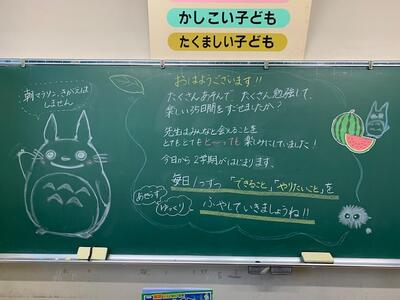 かしこい子ども
たくましい子ども
朝マラソン、きがえは
しません
おはようございます!!
たくさんあそんで、たくさん勉強して、
楽しい35日間をすごせましたか?
先生はみんなと会えることを
とてもとても と〜っても 楽しみにしていました!
今日から2学期がはじまります。
毎日1つずつ 「できること」「やりたいこと」を
あせらず
ゆっくり
ふやしていきましょうね!!